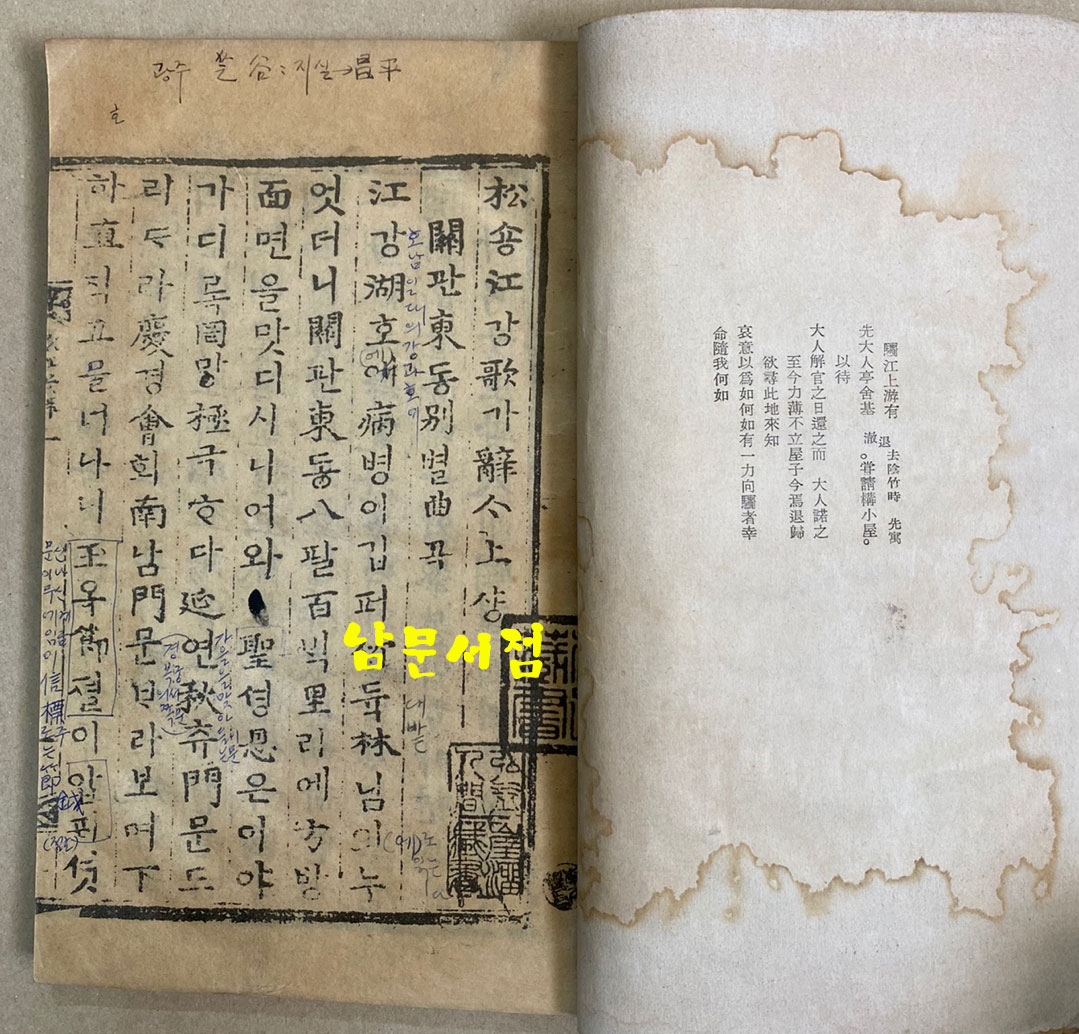 驪江上游有　去陰竹時　先寓
退
先大人亭舍基　澈。嘗請構小屋。
以待
大人解官之日還之而　大人諾之
至今力薄不立屋子今焉退歸
欲尋此地來知
哀意以爲如何如有一力向驪者幸
命隨我何如
광주 芝谷:지실→昌平
호
松숑江강歌가辭ᄉᆞ上샹
關관東동別별曲곡
江강湖호애病병이깁퍼竹듁林님의누
엇더니關관東동八팔百ᄇᆡᆨ里리에方방
面면을맛디시니어와聖셩恩은이야
가디록罔망極극ᄒᆞ다延연秋츄門문드
리ᄃᆞ라慶경會회南남門문ᄇᆞ라보며下
하直직고믈너나니玉옥節졀이알ᄑᆡ셧
대밭
남문서점